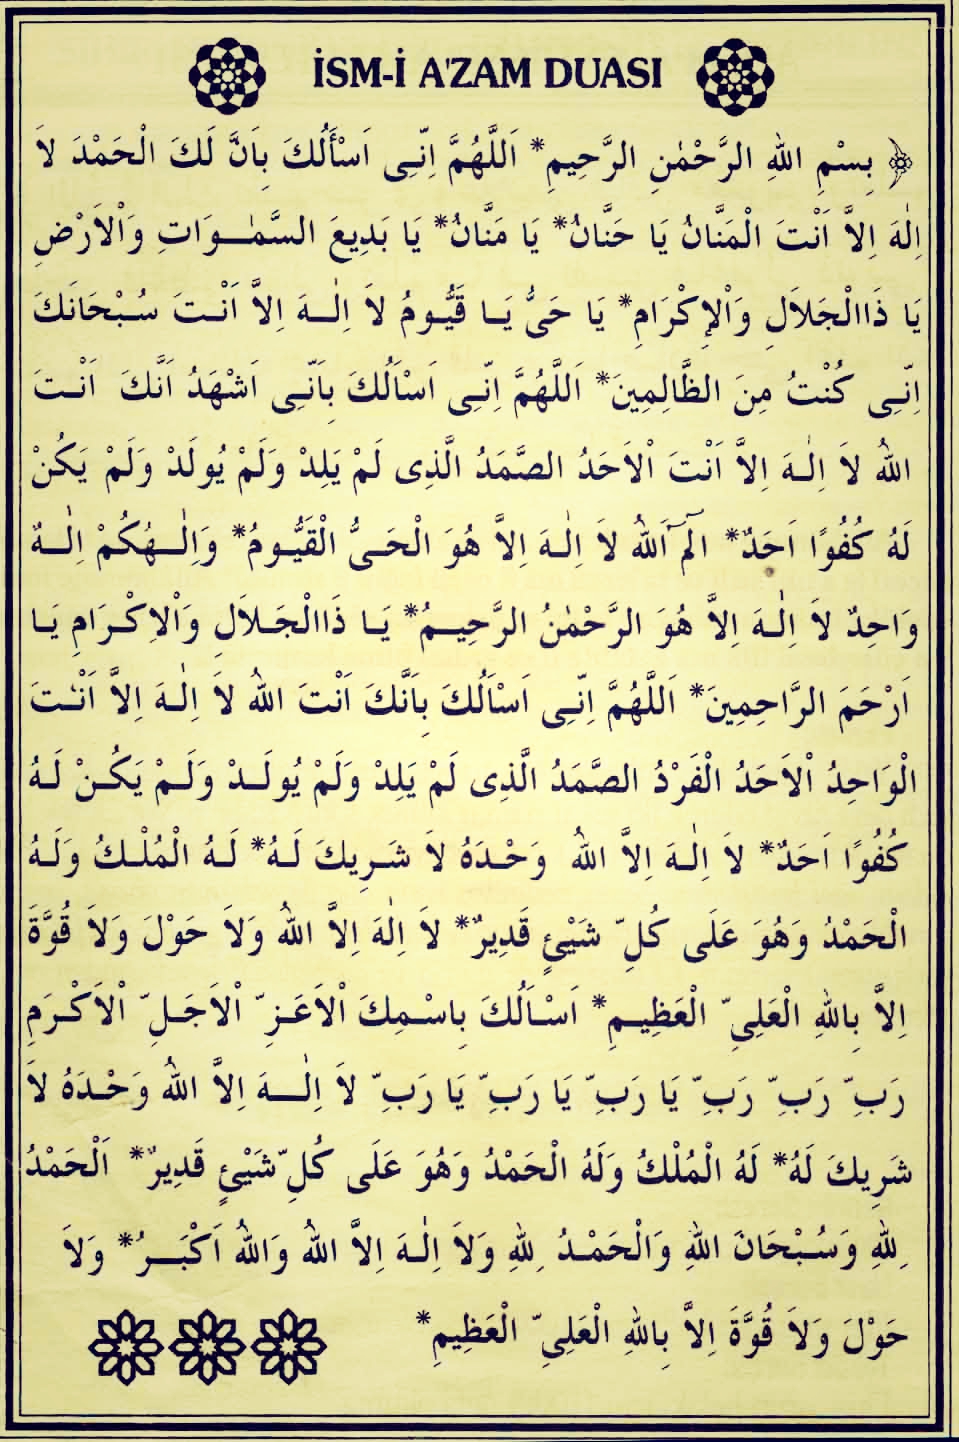 İSM-İ A'ZAM DUASI
﴿ بِسْمِ اللهِ الرَّحْمٰنِ الرَّحِيمِ* اَللَّهُمَّ اِنِّى اَسْأَلُكَ بِاَنَّ لَكَ الْحَمْدَ لاَ
اِلٰهَ اِلاَّ اَنْتَ الْمَنَّانُ يَا حَنَّانُ* يَا مَنَّانُ* يَا بَدِيعَ السَّمٰوَاتِ وَاْلاَرْضِ
يَا ذَاالْجَلاَلِ وَاْلاِكْرَامِ* يَا حَىُّ يَا قَيُّومُ لاَ اِلٰهَ اِلاَّ اَنْتَ سُبْحَانَكَ
اِنِّى كُنْتُ مِنَ الظَّالِمِينَ* اَللَّهُمَّ اِنِّى اَسْاَلُكَ بِاَنِّى اَشْهَدُ اَنَّكَ اَنْتَ
اللهُ لاَ اِلٰهَ اِلاَّ اَنْتَ اْلاَحَدُ الصَّمَدُ الَّذِى لَمْ يَلِدْ وَلَمْ يُولَدْ وَلَمْ يَكُنْ
لَهُ كُفُوًا اَحَدٌ* الٓمٓ اَللهُ لاَ اِلٰهَ اِلاَّ هُوَ الْحَىُّ الْقَيُّومُ* وَاِلٰهُكُمْ اِلٰهٌ
وَاحِدٌ لاَ اِلٰهَ اِلاَّ هُوَ الرَّحْمٰنُ الرَّحِيمُ* يَا ذَاالْجَلاَلِ وَاْلاِكْرَامِ يَا
اَرْحَمَ الرَّاحِمِينَ* اَللَّهُمَّ اِنِّى اَسْاَلُكَ بِاَنَّكَ اَنْتَ اللهُ لاَ اِلٰهَ اِلاَّ اَنْتَ
الْوَاحِدُ اْلاَحَدُ الْفَرْدُ الصَّمَدُ الَّذِى لَمْ يَلِدْ وَلَمْ يُولَدْ وَلَمْ يَكُنْ لَهُ
كُفُوًا اَحَدٌ* لاَ اِلٰهَ اِلاَّ اللهُ وَحْدَهُ لاَ شَرِيكَ لَهُ* لَهُ الْمُلْكُ وَلَهُ
الْحَمْدُ وَهُوَ عَلَى كُلِّ شَيْئٍ قَدِيرٌ* لاَ اِلٰهَ اِلاَّ اللهُ وَلاَ حَوْلَ وَلاَ قُوَّةَ
اِلاَّ بِاللهِ الْعَلِىِّ الْعَظِيمِ* اَسْاَلُكَ بِاسْمِكَ اْلاَعَزِّ اْلاَجَلِّ اْلاَكْرَمِ
رَبِّ رَبِّ رَبِّ يَا رَبِّ يَا رَبِّ يَا رَبِّ لاَ اِلٰهَ اِلاَّ اللهُ وَحْدَهُ لاَ
شَرِيكَ لَهُ* لَهُ الْمُلْكُ وَلَهُ الْحَمْدُ وَهُوَ عَلَى كُلِّ شَيْئٍ قَدِيرٌ* اَلْحَمْدُ
لِلهِ وَسُبْحَانَ اللهِ وَالْحَمْدُ لِلهِ وَلاَ اِلٰهَ اِلاَّ اللهُ وَاللهُ اَكْبَرُ* وَلاَ
حَوْلَ وَلاَ قُوَّةَ اِلاَّ بِاللهِ الْعَلِىِّ الْعَظِيمِ*